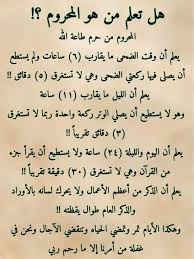 هل تعلم من هو المحروم ؟!
المحروم من حرم طاعة الله
يعلم أن وقت الضحى ما يقارب (٦) ساعات ولم يستطع
أن يصلى فيها ركعتي الضحى وهي لا تستغرق (٥) دقائق !!
يعلم أن الليل ما يقارب (١١) ساعة
وهو لا يستطيع أن يصلي الوتر ركعة واحدة وما تستغرق
(٣) دقائق تقريباً !!
يعلم أن اليوم والليلة (٢٤) ساعة ولا يستطيع أن يقرأ جزء
من القرآن وهي لا تستغرق (٣٠) دقيقة تقريباً !!
يعلم أن الذكر من أعظم الأعمال ولا يحرك لسانه بالأوراد
والذكر العام طوال يقظته !!
وهكذا الأيام تمر وتمضي الحياه وتنقضي الآجال ونحن في
غفلة من أمرنا إلا ما رحم ربي